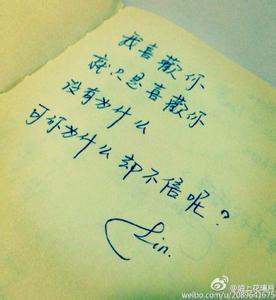 我喜歡你
就只是喜歡你
没有为什么
可你为什么却不信呢？
Lin.
@陌上花璃月
weibo.com/u/2089641675